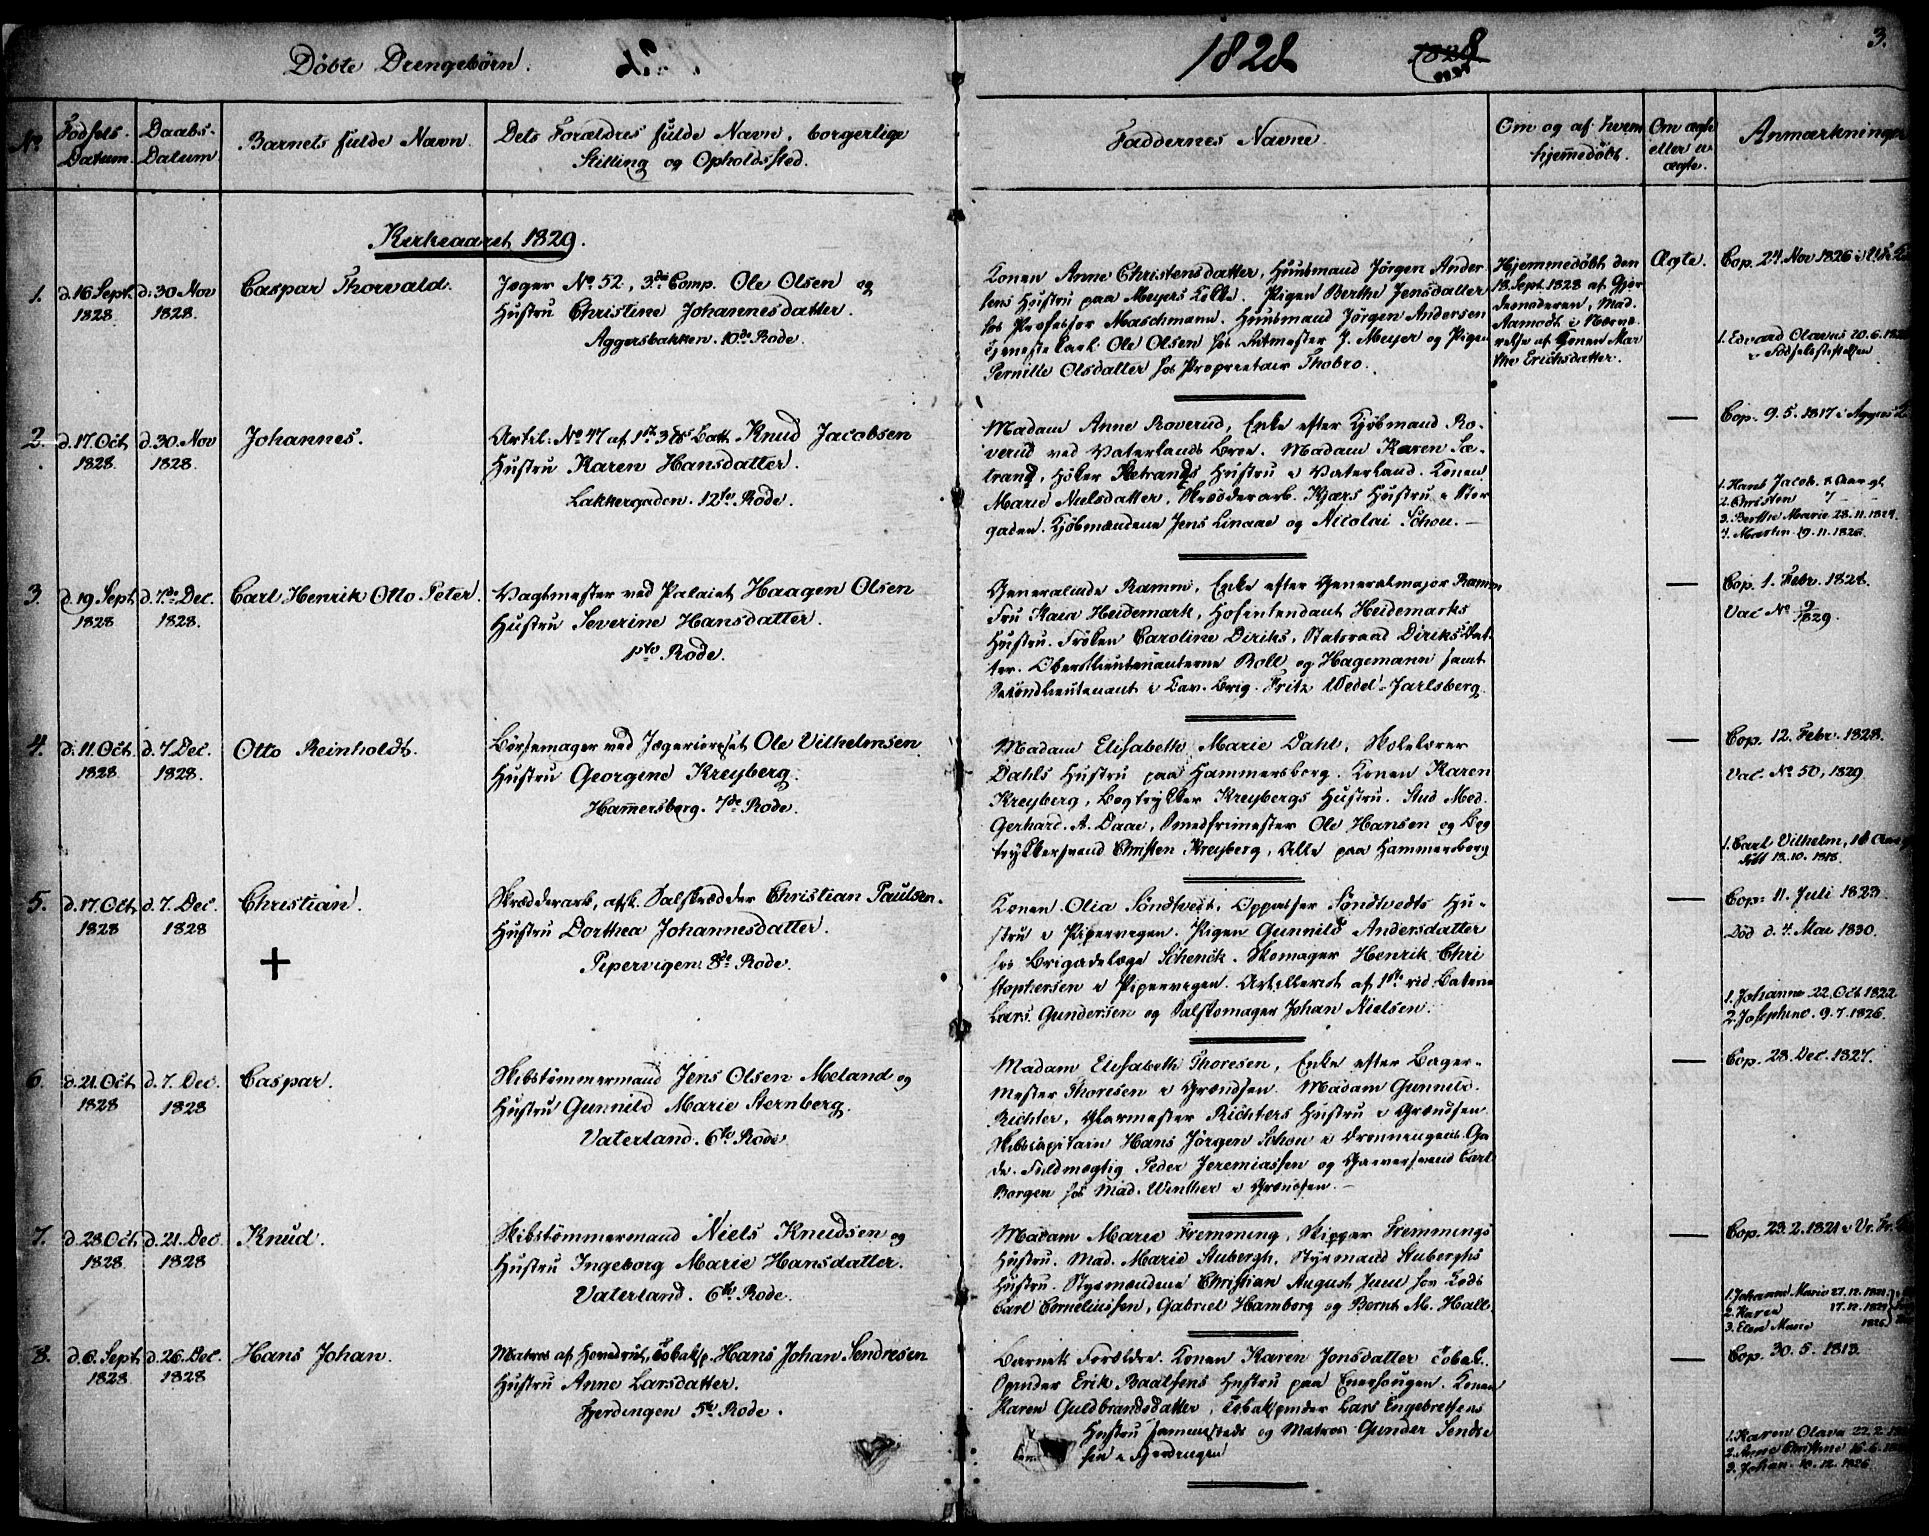 Døbte Drengebørn.
1828
3.
No
Fødsels-
Datum.
Daabs-
Datum
Barnets fulde Navn.
Dets Forældres fulde Navn, borgerlige
Stilling og Opholdssted.
Faddernes Navne.
Om og af hvem
hjemmedøbt.
Om ægte
eller u-
ægte.
Anmærkninger
Kirkeaaret 1829.
1.
d. 16 Sept.
1828
d. 30 Nov
1828.
Caspar Thorvald.
Jæger No 52, 3de Comp. Ole Olsen og
Hustru Christine Johannesdatter.
Aggersbakken. 10de Rode.
Konen Anne Christensdatter, Huusmand Jørgen Ander-
sens Hustru paa Meyers Løkke. Pigen Berthe Jensdatter
hos Professor Maschmann. Huusmand Jørgen Andersen
Tjenestekarl Ole Olsen hos J. Meyer og Pigen
Pernille Olsdatter hos Proprietair Thobro.
Hjemmedøbt den
18. Sept. 1828 af Gjor
demoderen, Mad.
Aamodt i Nærvæ
relse af Konen Mar
the Erichsdatter.
Ægte.
Cop. 24. Nov 1826
1. Edvard Olavus 20.6.
Fødselsstiftelsen
2.
d. 17. Oct.
1828.
d. 30. Nov
1828.
Johannes.
Artil. No 47 af 1ste 3 Batt. Knud Jacobsen
Hustru Karen Hansdatter.
Lakkergaden. 12te Rode.
Madam Anne Roverud, Enke efter Kjøbmand Ro-
verud ved Vaterlands Broe. Madam Karen Sæ-
trand, Høker Sætrands Hustru i Vaterland. Konen
Marie Nielsdatter, Skrædderarb. Kjærs Hustru i Stor
gaden. Kjøbmændene Jens Linaae og Nicolai Schou. —
—
Cop. 9. 5. 1817 i Aggers
1. Hans Jacob.
2. Christen
3. Berthe Marie 28.11.1824.
4. Martin 19.11.1826.
3.
d. 19 Sept
1828
d. 7de Dec.
1828.
Carl Henrik Otto Peter.
Vagtmester ved Palaiet Haagen Olsen
Hustru Severine Hansdatter.
1ste Rode.
Generalinde Ramm, Enke efter Generalmajor Ramm
Fru Kaia Heidemark, Hofintendant Heidemarks
Hustru. Frøken Caroline Diriks, Statsraad Diriks Dat-
ter. Oberstlieutenanterne Roll og Hagemann samt
Secondlieutenant i Cav. Brig. Fritz Wedel-Jarlsberg.
—
Cop. 1. Febr. 1828.
Vac No 9/1829.
4.
d. 11. Oct.
1828
d. 7. Dec.
1828.
Otto Reinholdt.
Børsemager ved Jægercorpset Ole Vilhelmsen
Hustru Georgene Kreyberg.
Hamersborg. 7de Rode.
Madam Elisabeth Marie Dahl, Skolelærer
Dahls Hustru paa Hammersborg. Konen Karen
Kreyberg, Bogtrykker Kreybergs Hustru. Stud Med.
Gerhard. A. Daae, Smedfrimester Ole Hansen og Bog
trykkersvend Christen Kreyberg, Alle paa Hammersborg
—
Cop. 12. Febr. 1828.
Vac. No 50, 1829.
1. Carl Vilhelm, 10 Aar
født 13.10.1818.
5.
d. 17. Oct.
1828
d. 7. Dec.
1828
Christian.
+
Skrædderarb., afsk. Salskrædder Christian Paulsen.
Hustru Dorthea Johannesdatter.
Pipervigen 8de Rode.
Konen Olia Søndtvedt, Oppasser Søndtvedts Hu-
stru i Pipervigen. Pigen Gunnild Andersdatter
hos Brigadelæge Schenck. Skomager Henrik Chri
stophersen i Pipervigen. Artillerist af 1ste rid. Batterie
Lars Gundersen og Salskomager Johan Nielsen.
—
Cop. 11. Juli 1823.
Død d. 4. Mai 1830.
1. Johanne 22. Oct 1822
2. Josephine. 9.7.1826.
6.
d. 21. Oct
1828
d. 7. Dec.
1828
Caspar.
Skibstømmermand Jens Olsen Meland og
Hustru Gunnild Marie Sternberg.
Vaterland. 6te Rode.
Madam Elisabeth Thoresen, Enke efter Bager-
mester Thoresen i Grændsen. Madam Gunnild
Richter, Glarmester Richters Hustru i Grændsen.
Skibscapitain Hans Jørgen Schou i Dronningens Ga
de. Fuldmægtig Peder Jeremiassen og Garversvend Carl
Borgen hos Mad. Winther i Grændsen. —
—
Cop. 28. Dec. 1827.
7.
d. 28. Oct
1828.
d. 21. Dec
1828
Knud.
Skibstømmermand Niels Knudsen og
Hustru Ingeborg Marie Hansdatter.
Vaterland. 6te Rode.
Madam Marie Fremming, Skipper Fremmings
Hustru. Mad. Marie Stubergh, Styrmand Stuberghs
Hustru. Styrmændene Christian August Juul
Carl Corneliussen, Gabriel Hamborg og Bernt M. Hall.
—
Cop. 23.2.1821 i Vr. Fr.
1. Johanne Marie 27.12.1821.
2. Karen 17.12.
3. Elen Marie 1826
8.
d. 6. Sept.
1828
d. 26. Dec.
1828
Hans Johan.
Matros af Hovedrul., Tobaksp. Hans Johan Sendresen
Hustru Anne Larsdatter.
Fjerdingen 5te Rode.
Barnets Forældre. Konen Karen Jonsdatter Tobak-
spinder Erik Baalsens Hustru paa Enerhougen. Konen
Karen Guldbrandsdatter, Tobakspinder Lars Engebretsens
Hustru sammesteds og Matros Gunder Sendre
sen i Fjerdingen
—
Cop. 30. 5. 1813.
1. Karen Olava 22.2.
2. Anne Christine 16.6.
3. Johan. 10.12.1826.